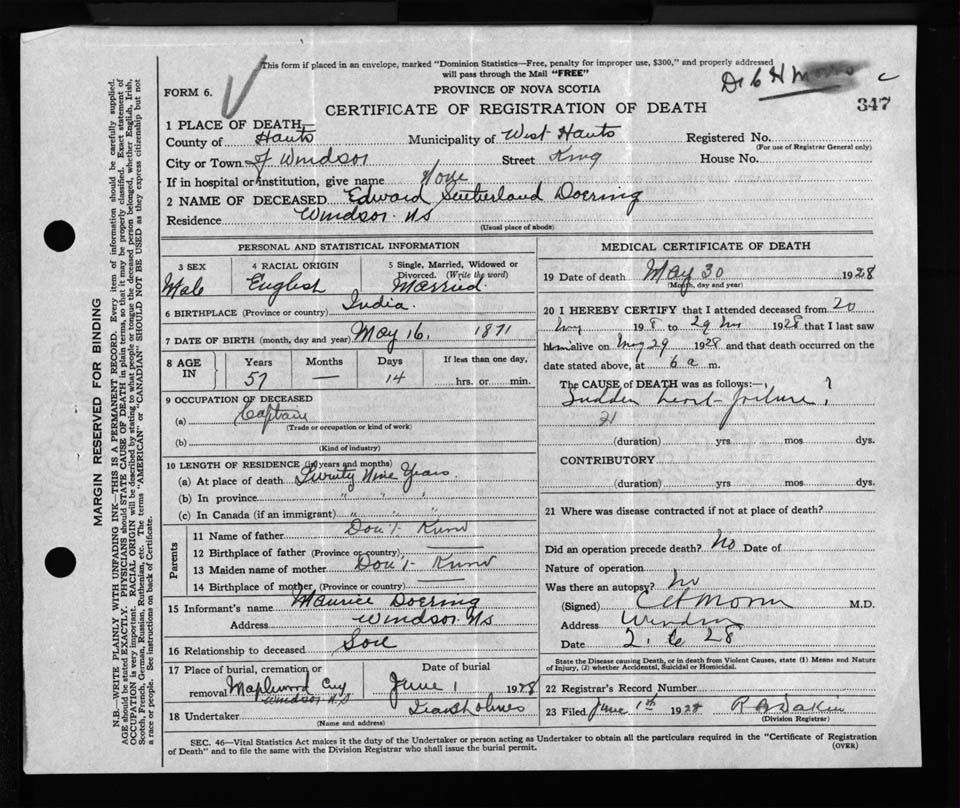 This form if placed in an envelope, marked "Dominion Statistics—Free, penalty for improper use, $300," and properly addressed
will pass through the Mail "FREE"
Dr C H Morris c
FORM 6.
PROVINCE OF NOVA SCOTIA
347
CERTIFICATE OF REGISTRATION OF DEATH
1 PLACE OF DEATH—
County of Hants Municipality of West Hants Registered No.
(For use of Registrar General only)
City or Town of Windsor Street King House No.
If in hospital or institution, give name None
2 NAME OF DECEASED Edward Sutherland Doering
Residence Windsor NS
(Usual place of abode)
PERSONAL AND STATISTICAL INFORMATION
3 SEX 4 RACIAL ORIGIN 5 Single, Married, Widowed or
Divorced. (Write the word)
Male English Married
6 BIRTHPLACE (Province or country) India
7 DATE OF BIRTH (month, day and year) May 16, 1871
8 AGE IN Years Months Days If less than one day,
57 — 14 hrs. or min.
9 OCCUPATION OF DECEASED
(a) Captain
(Trade or occupation or kind of work)
(b)
(Kind of industry)
10 LENGTH OF RESIDENCE (in years and months)
(a) At place of death Twenty Nine Years
(b) In province " " "
(c) In Canada (if an immigrant) " " "
Parents
11 Name of father Don't Know
12 Birthplace of father (Province or country) —
13 Maiden name of mother Don't Know
14 Birthplace of mother (Province or country) —
15 Informant's name Maurice Doering
Address Windsor NS
16 Relationship to deceased Son
17 Place of burial, cremation or Date of burial
removal Maplewood Cmy June 1 1928
Windsor N.S
18 Undertaker
(Name and address)
MEDICAL CERTIFICATE OF DEATH
19 Date of death May 30 1928
(Month, day and year)
20 I HEREBY CERTIFY that I attended deceased from 20
192 8 to 29 1928 that I last saw
him alive on May 29 1928 and that death occurred on the
date stated above, at 6 a m.
The CAUSE OF DEATH was as follows:— ?
Sudden heart failure,
(duration) yrs mos dys.
CONTRIBUTORY
(duration) yrs. mos. dys.
21 Where was disease contracted if not at place of death?
Did an operation precede death? No Date of
Nature of operation
Was there an autopsy? No
(Signed) C H Morris M.D.
Address Windsor
Date 2. 6 28
State the Disease causing Death, or in death from Violent Causes, state (1) Means and Nature
of Injury, (2) whether Accidental, Suicidal or Homicidal.
22 Registrar's Record Number
23 Filed June 1th 1928
(Division Registrar)
SEC. 46—Vital Statistics Act makes it the duty of the Undertaker or person acting as Undertaker to obtain all the particulars required in the "Certificate of Registration
of Death" and to file the same with the Division Registrar who shall issue the burial permit.
(OVER)
MARGIN RESERVED FOR BINDING
N.B.—WRITE PLAINLY WITH UNFADING INK—THIS IS A PERMANENT RECORD. Every item of information should be carefully supplied.
AGE should be stated EXACTLY. PHYSICIANS should STATE CAUSE OF DEATH in plain terms, so that it may be properly classified. Exact statement of
OCCUPATION is very important. RACIAL ORIGIN will be described by stating to what people or tongue the deceased person belonged, whether English, Irish,
Scotch, French, German, Russian, Ruthenian, etc. The terms "AMERICAN" or "CANADIAN" SHOULD NOT BE USED as they express citizenship but not
a race or people. See instructions on back of Certificate.